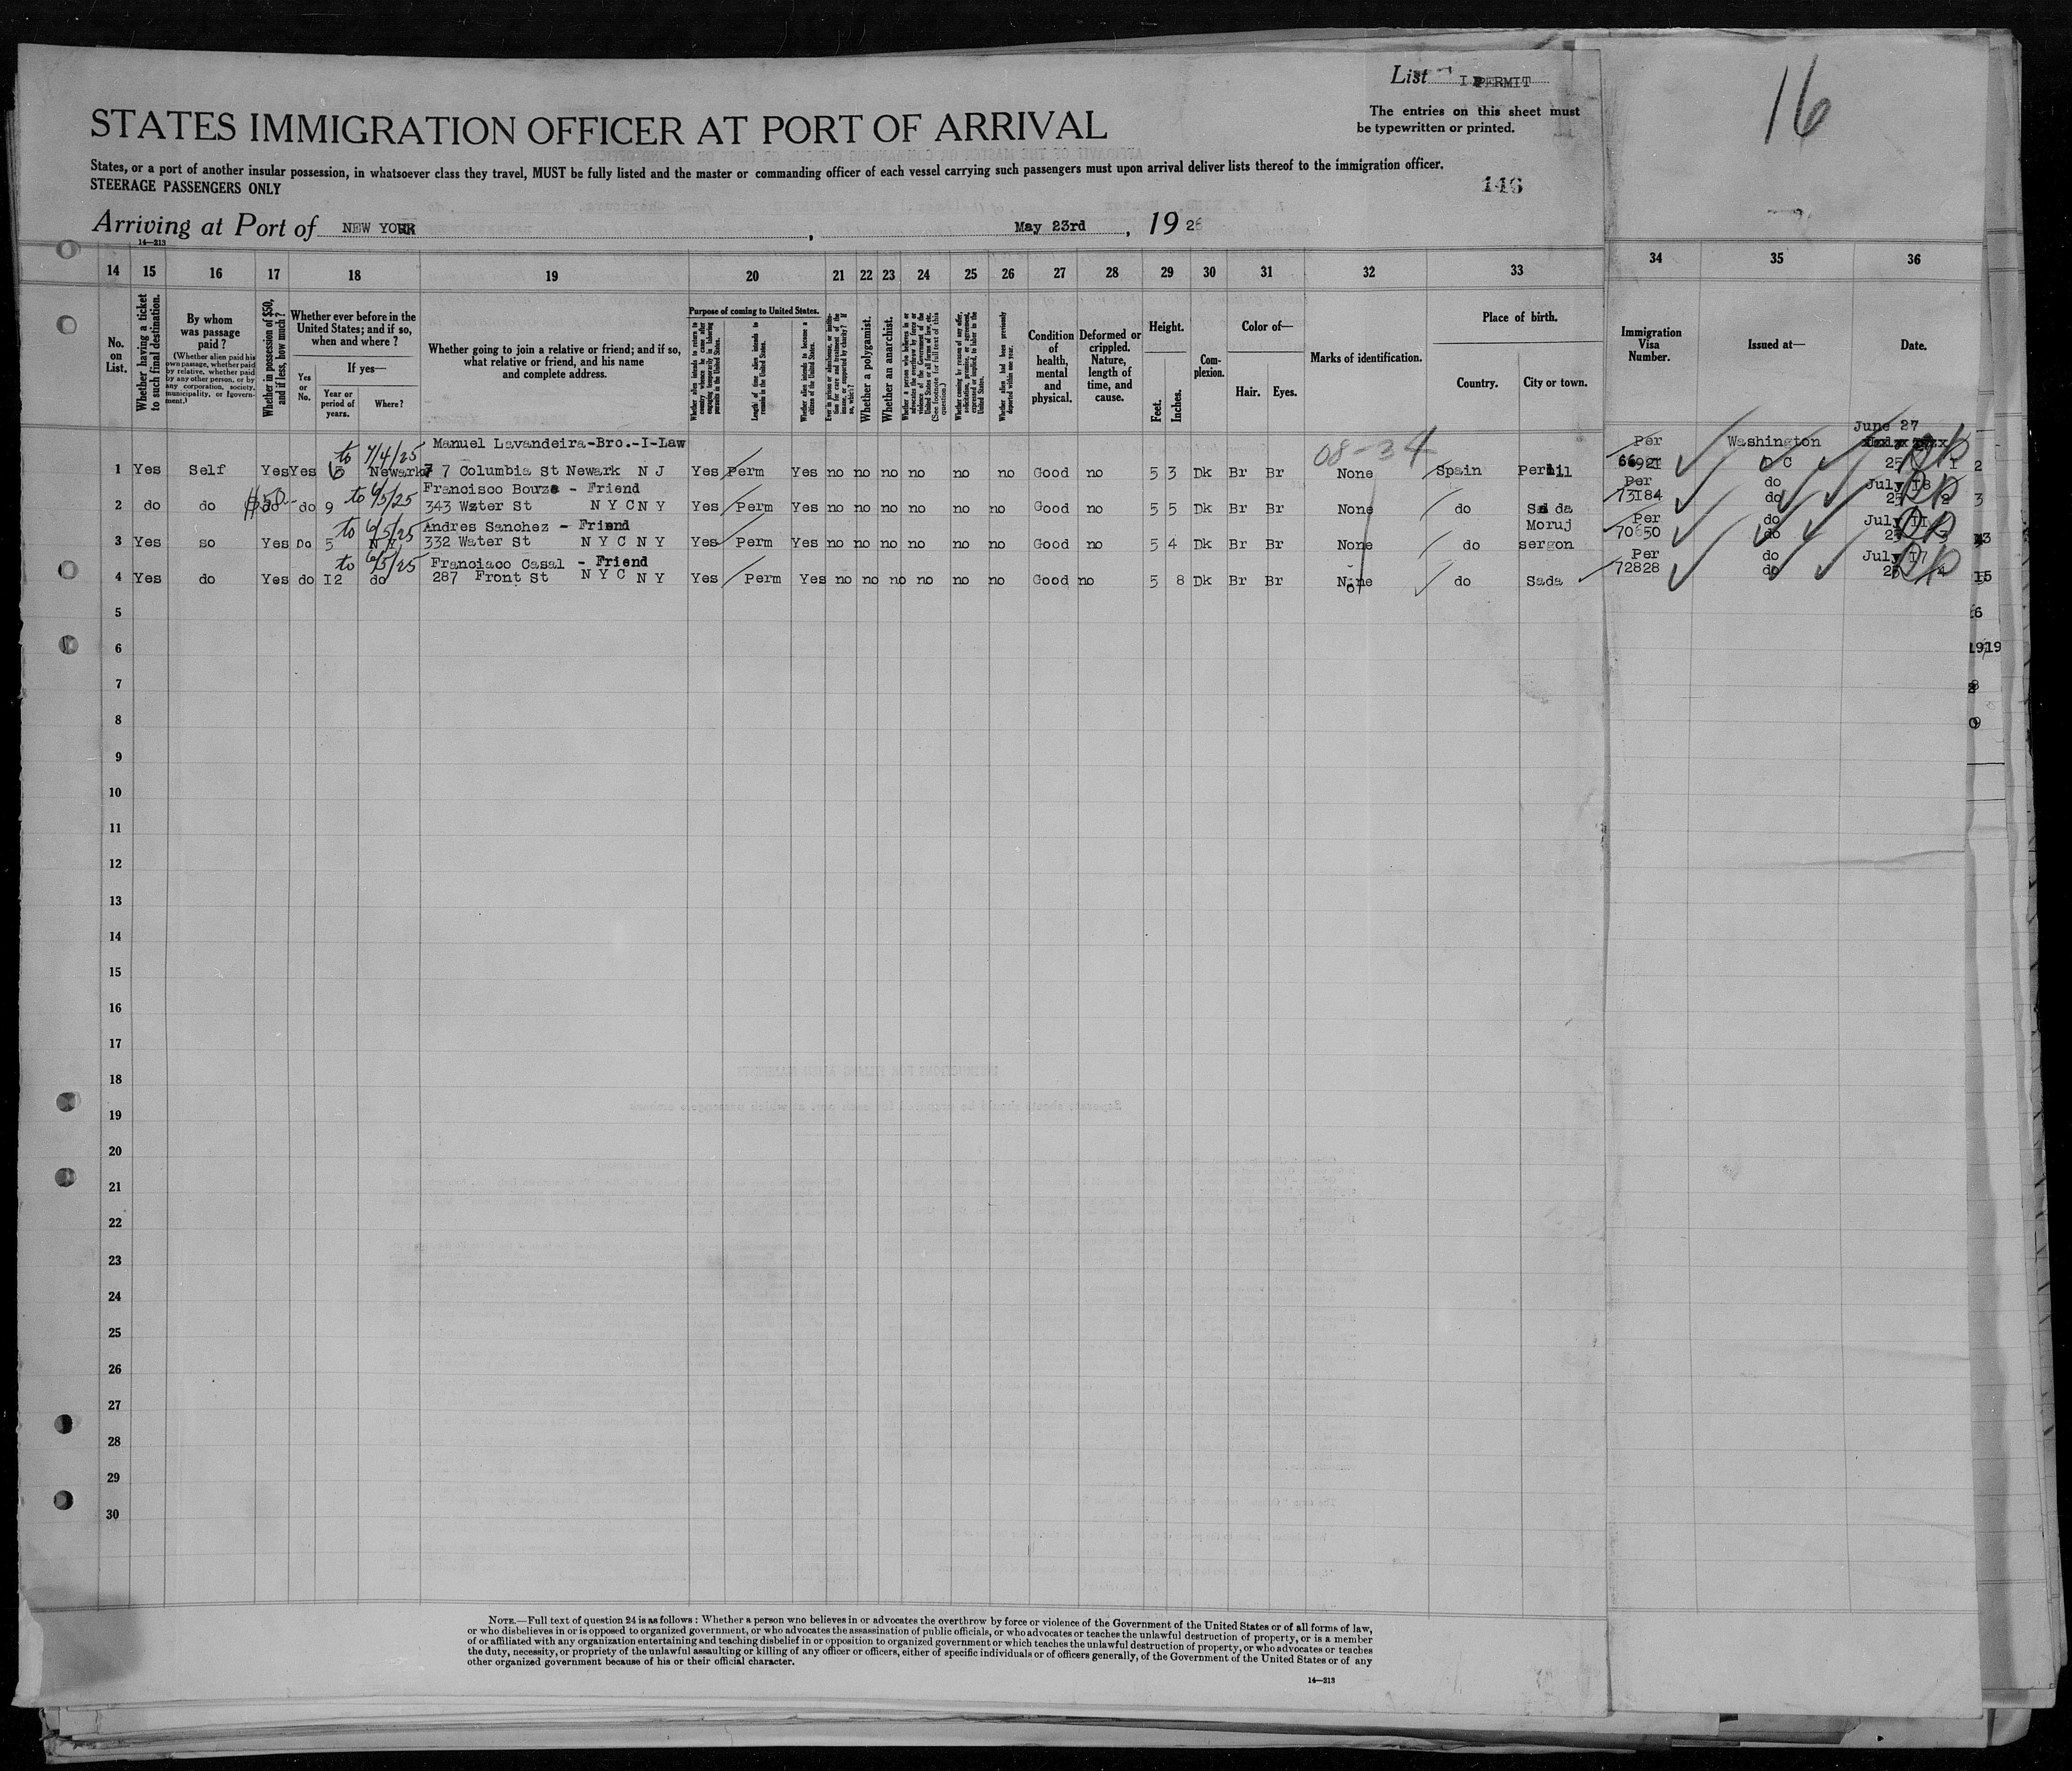 List I PERMIT
16
The entries on this sheet must
be typewritten or printed.
STATES IMMIGRATION OFFICER AT PORT OF ARRIVAL
States, or a port of another insular possession, in whatsoever class they travel, MUST be fully listed and the master or commanding officer of each vessel carrying such passengers must upon arrival deliver lists thereof to the immigration officer.
STEERAGE PASSENGERS ONLY
146
Arriving at Port of NEW YORK , May 23rd , 19 26
14—213
14 15 16 17 18 19 20 21 22 23 24 25 26 27 28 29 30 31 32 33 34 35 36
No. on List.
Whether having a ticket to such final destination.
By whom was passage paid?
(Whether alien paid his own passage, whether paid by relative, whether paid by any other person, or by any corporation, society, municipality, or government.)
Whether in possession of $50, and if less, how much?
Whether ever before in the United States; and if so, when and where?
If yes—
Yes or No.
Year or period of years.
Where?
Whether going to join a relative or friend; and if so, what relative or friend, and his name and complete address.
Purpose of coming to United States.
Whether alien intends to return to country whence he came after engaging temporarily in laboring pursuits in the United States.
Length of time alien intends to remain in the United States.
Whether alien intends to become a citizen of the United States.
Ever in prison or almshouse, or institution for care and treatment of the insane, or supported by charity? If so, which?
Whether a polygamist.
Whether an anarchist.
Whether a person who believes in or advocates the overthrow by force or violence of the Government of the United States or all forms of law, etc. (See footnote for full text of this question.)
Whether coming by reason of any offer, solicitation, promise, or agreement, expressed or implied, to labor in the United States.
Whether alien had been previously deported within one year.
Condition of health, mental and physical.
Deformed or crippled. Nature, length of time, and cause.
Height.
Feet.
Inches.
Complexion.
Color of—
Hair. Eyes.
Marks of identification.
Place of birth.
Country. City or town.
Immigration Visa Number.
Issued at—
Date.
to 7/4/25 Manuel Lavandeira-Bro.-I-Law 08-34 Per Washington June 27
1 Yes Self Yes Yes Newark 7 Columbia St Newark N J Yes Perm Yes no no no no no no Good no 5 3 Dk Br Br None Spain D C 25 1 2
$50 to 6/5/25 Francisco Bouza - Friend Per do July I8
2 do do do 9 343 Water St N Y C N Y Yes Perm Yes no no no no no no Good no 5 5 Dk Br Br None do Sada 73184 do 25 2 3
to 6/5/25 Andres Sanchez - Friend Moruj Per do July II
3 Yes so Yes Do 5 N Y 332 Water St N Y C N Y Yes Perm Yes no no no no no no Good no 5 4 Dk Br Br None do sergon 70650 do 25 3
to 6/5/25 Francisco Casal - Friend Per do July I7
4 Yes do Yes do I2 do 287 Front St N Y C N Y Yes Perm Yes no no no no no no Good no 5 8 Dk Br Br None do Sada 72828 do 25 4 15
5
6
7
8
9
10
11
12
13
14
15
16
17
18
19
20
21
22
23
24
25
26
27
28
29
30
NOTE.—Full text of question 24 is as follows: Whether a person who believes in or advocates the overthrow by force or violence of the Government of the United States or of all forms of law,
or who disbelieves in or is opposed to organized government, or who advocates the assassination of public officials, or who advocates or teaches the unlawful destruction of property, or is a member
of or affiliated with any organization entertaining and teaching disbelief in or opposition to organized government or which teaches the unlawful destruction of property, or who advocates or teaches
the duty, necessity, or propriety of the unlawful assaulting or killing of any officer or officers, either of specific individuals or of officers generally, of the Government of the United States or of any
other organized government because of his or their official character.
14—213